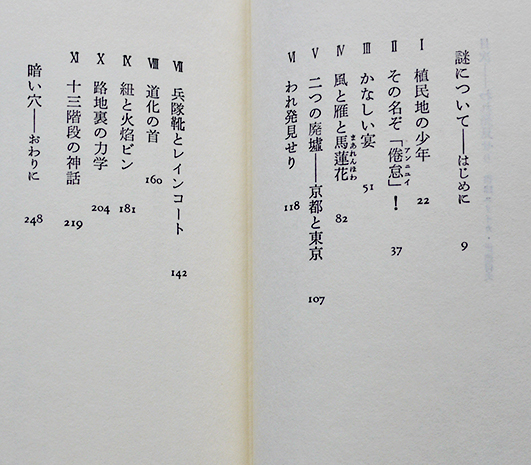 謎について——はじめに 9
I 植民地の少年 22
II その名ぞ「倦怠」! 37
アンニュイ
III かなしい宴 51
IV 風と雁と馬蓮花 82
まあれんほわ
V 二つの廃墟——京都と東京 107
VI われ発見せり 118
VII 兵隊靴とレインコート 142
VIII 道化の首 160
IX 紐と火焰ビン 181
X 路地裏の力学 204
XI 十三階段の神話 219
暗い穴——おわりに 248